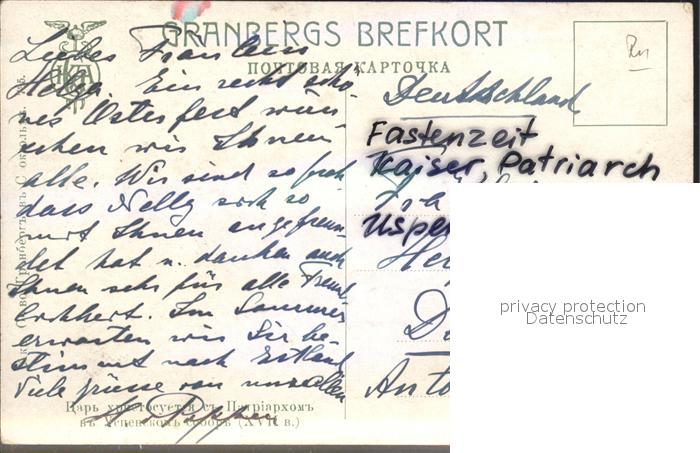 GRANBERGS BREFKORT
ПОЧТОВАЯ КАРТОЧКА
Liebes Fräulein
Helga. Ein recht schö-
nes Osterfest wün-
schen wir Ihnen
alle. Wir sind so froh
dass Nelly sich so
mit Ihnen angefreun-
det hat u. danken auch
Ihnen sehr für alle Freund-
lichkeit. Im Sommer
erwarten wir Sie be-
stimmt nach Estland
Viele Grüsse von uns allen
Царь христосуется съ Патріархомъ
въ Успенскомъ соборѣ (XVII в.)
Deutschland
Fastenzeit
Kaiser, Patriarch
privacy protection
Datenschutz